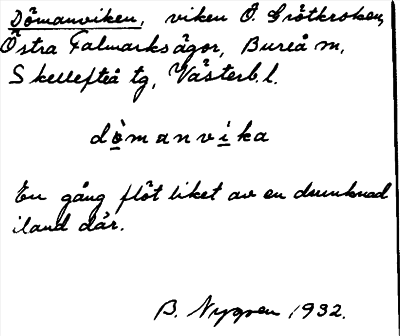 Dömanviken, viken Ö. Grötkroken,
Östra Falmarksägor, Bureå m,
Skellefteå tg, Västerb. l.
dòmanvika
En gång flöt liket av en drunknad
iland där.
B. Nygren 1932.